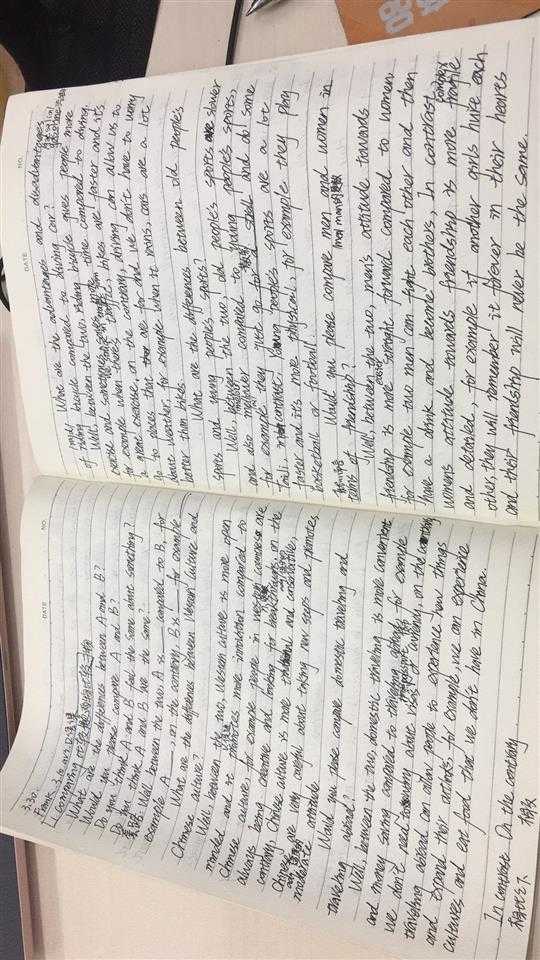 DATE NO.
3.30.
Frank
1. Comparing
What are the differences between A and B?
Would you please compare A and B?
Do you think A and B feel the same about something?
Do you think A and B are the same?
Well, between the two, A is ___ compared to B, for
example A ___, on the contrary, B is ___ for example
What are the difference between Western culture and
Chinese culture?
Well between the two, Western culture is more open
minded and it promotes more innovation compared to
Chinese culture, for example people in western are
always being creative and looking for new on the
contrary Chinese culture is more and conservative,
Chinese are very careful about taking new steps and promotes
moderate attitude
Would you please compare domestic traveling and
traveling abroad?
Well, between the two, domestic traveling is more convenient
and money saving compared to traveling for example
we don't need to worry about visas or currency, on the contrary
traveling abroad can allow people to experience new things
and expand their outlooks for example, we can experience
cultures and eat food that we don't have in China.
In comparison On the contrary
相比之下 相反
DATE NO.
What are the advantages and disadvantages
of riding bicycle compared to driving car?
Well between the two, riding bicycle gives people more
exercise and sometimes time compared to driving.
for example when there's traffic, bikes are faster and it's
a more exercise, on the contrary, driving can allow us to
go to places that are far and we don't have to worry
about weather, for example when it rains, cars are a lot
better than bikes
What are the differences between old people's
sports and young people's sports?
Well, between the two, old people's sports are slower
and also compared to young people's sports,
for example, they just go for stroll and do some
Taiji. in contrast, young people's sports are a lot
faster and it's more physical, for example they play
basketball or football.
Would you please compare men and women in
terms of friendship?
Well, between the two, men's attitude towards
friendship is more straight forward compared to women
for example two men can fight each other and then
have a drink and become brothers, In contrast
women's attitude towards friendship is more fragile
and detailed, for example if another girls hurt each
other, they will remember it forever in their heares
and their friendship will never be the same.